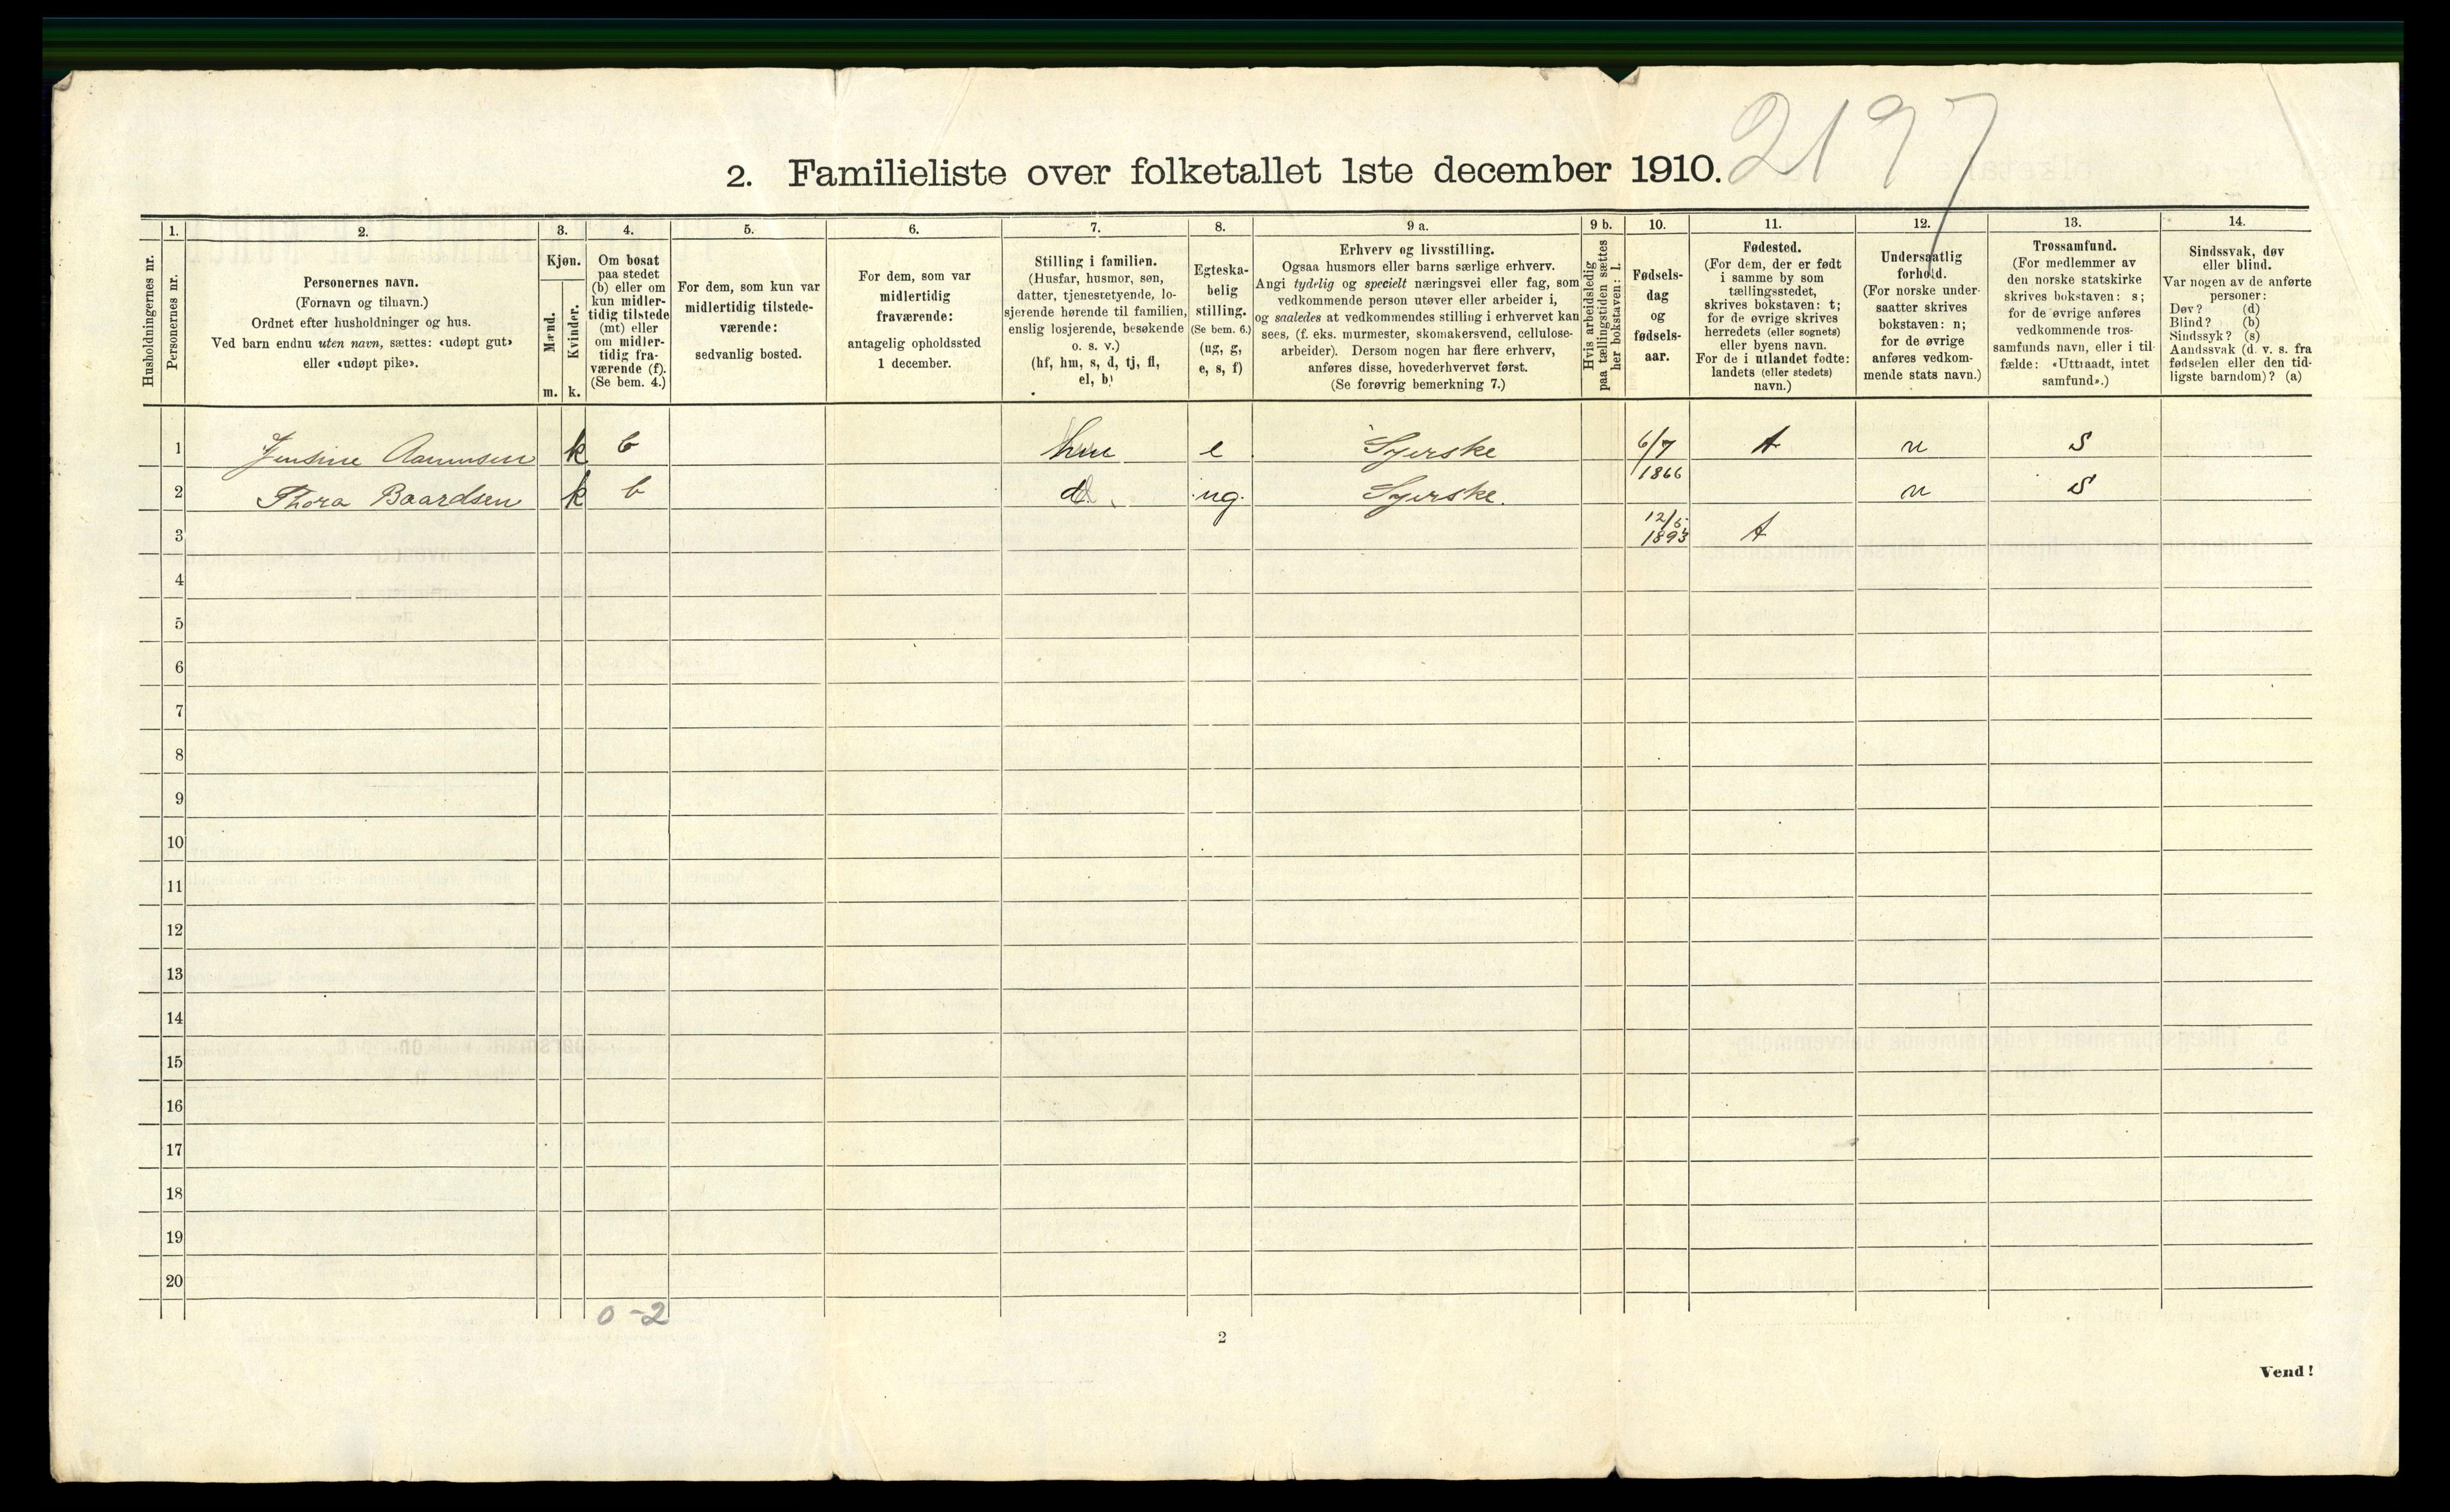 2197
2. Familieliste over folketallet 1ste december 1910.
Husholdningernes nr.
1.
Personernes nr.
2.
Personernes navn.
(Fornavn og tilnavn.)
Ordnet efter husholdninger og hus.
Ved barn endnu uten navn, sættes: «udøpt gut»
eller «udøpt pike».
3.
Kjøn.
Mænd.
Kvinder.
m.
k.
4.
Om bosat
paa stedet
(b) eller om
kun midler-
tidig tilstede
(mt) eller
om midler-
tidig fra-
værende (f).
(Se bem. 4.)
5.
For dem, som kun var
midlertidig tilstede-
værende:
sedvanlig bosted.
6.
For dem, som var
midlertidig
fraværende:
antagelig opholdssted
1 december.
7.
Stilling i familien.
(Husfar, husmor, søn,
datter, tjenestetyende, lo-
sjerende hørende til familien,
enslig losjerende, besøkende
o. s. v.)
(hf, hm, s, d, tj, fl,
el, b)
8.
Egteska-
belig
stilling.
(Se bem. 6.)
(ug, g,
e, s, f)
9 a.
Erhverv og livsstilling.
Ogsaa husmors eller barns særlige erhverv.
Angi tydelig og specielt næringsvei eller fag, som
vedkommende person utøver eller arbeider i,
og saaledes at vedkommendes stilling i erhvervet kan
sees, (f. eks. murmester, skomakersvend, cellulose-
arbeider). Dersom nogen har flere erhverv,
anføres disse, hovederhvervet først.
(Se forøvrig bemerkning 7.)
9 b.
Hvis arbeidsledig
paa tællingstiden sættes
her bokstaven: l.
10.
Fødsels-
dag
og
fødsels-
aar.
11.
Fødested.
(For dem, der er født
i samme by som
tællingsstedet,
skrives bokstaven: t;
for de øvrige skrives
herredets (eller sognets)
eller byens navn.
For de i utlandet fødte:
landets (eller stedets)
navn.)
12.
Undersaatlig
forhold.
(For norske under-
saatter skrives
bokstaven: n;
for de øvrige
anføres vedkom-
mende stats navn.)
13.
Trossamfund.
(For medlemmer av
den norske statskirke
skrives bokstaven: s;
for de øvrige anføres
vedkommende tros-
samfunds navn, eller i til-
fælde: «Uttraadt, intet
samfund».)
14.
Sindssvak, døv
eller blind.
Var nogen av de anførte
personer:
Døv? (d)
Blind? (b)
Sindssyk? (s)
Aandssvak (d. v. s. fra
fødselen eller den tid-
ligste barndom)? (a)
1 Jensine k b e Syerske 6/7 1866 t n S
2 Thora Baardsen k b d ug. Syerske. n S
3 12/5 1893 t
4
5
6
7
8
9
10
11
12
13
14
15
16
17
18
19
20
0-2
2
Vend!